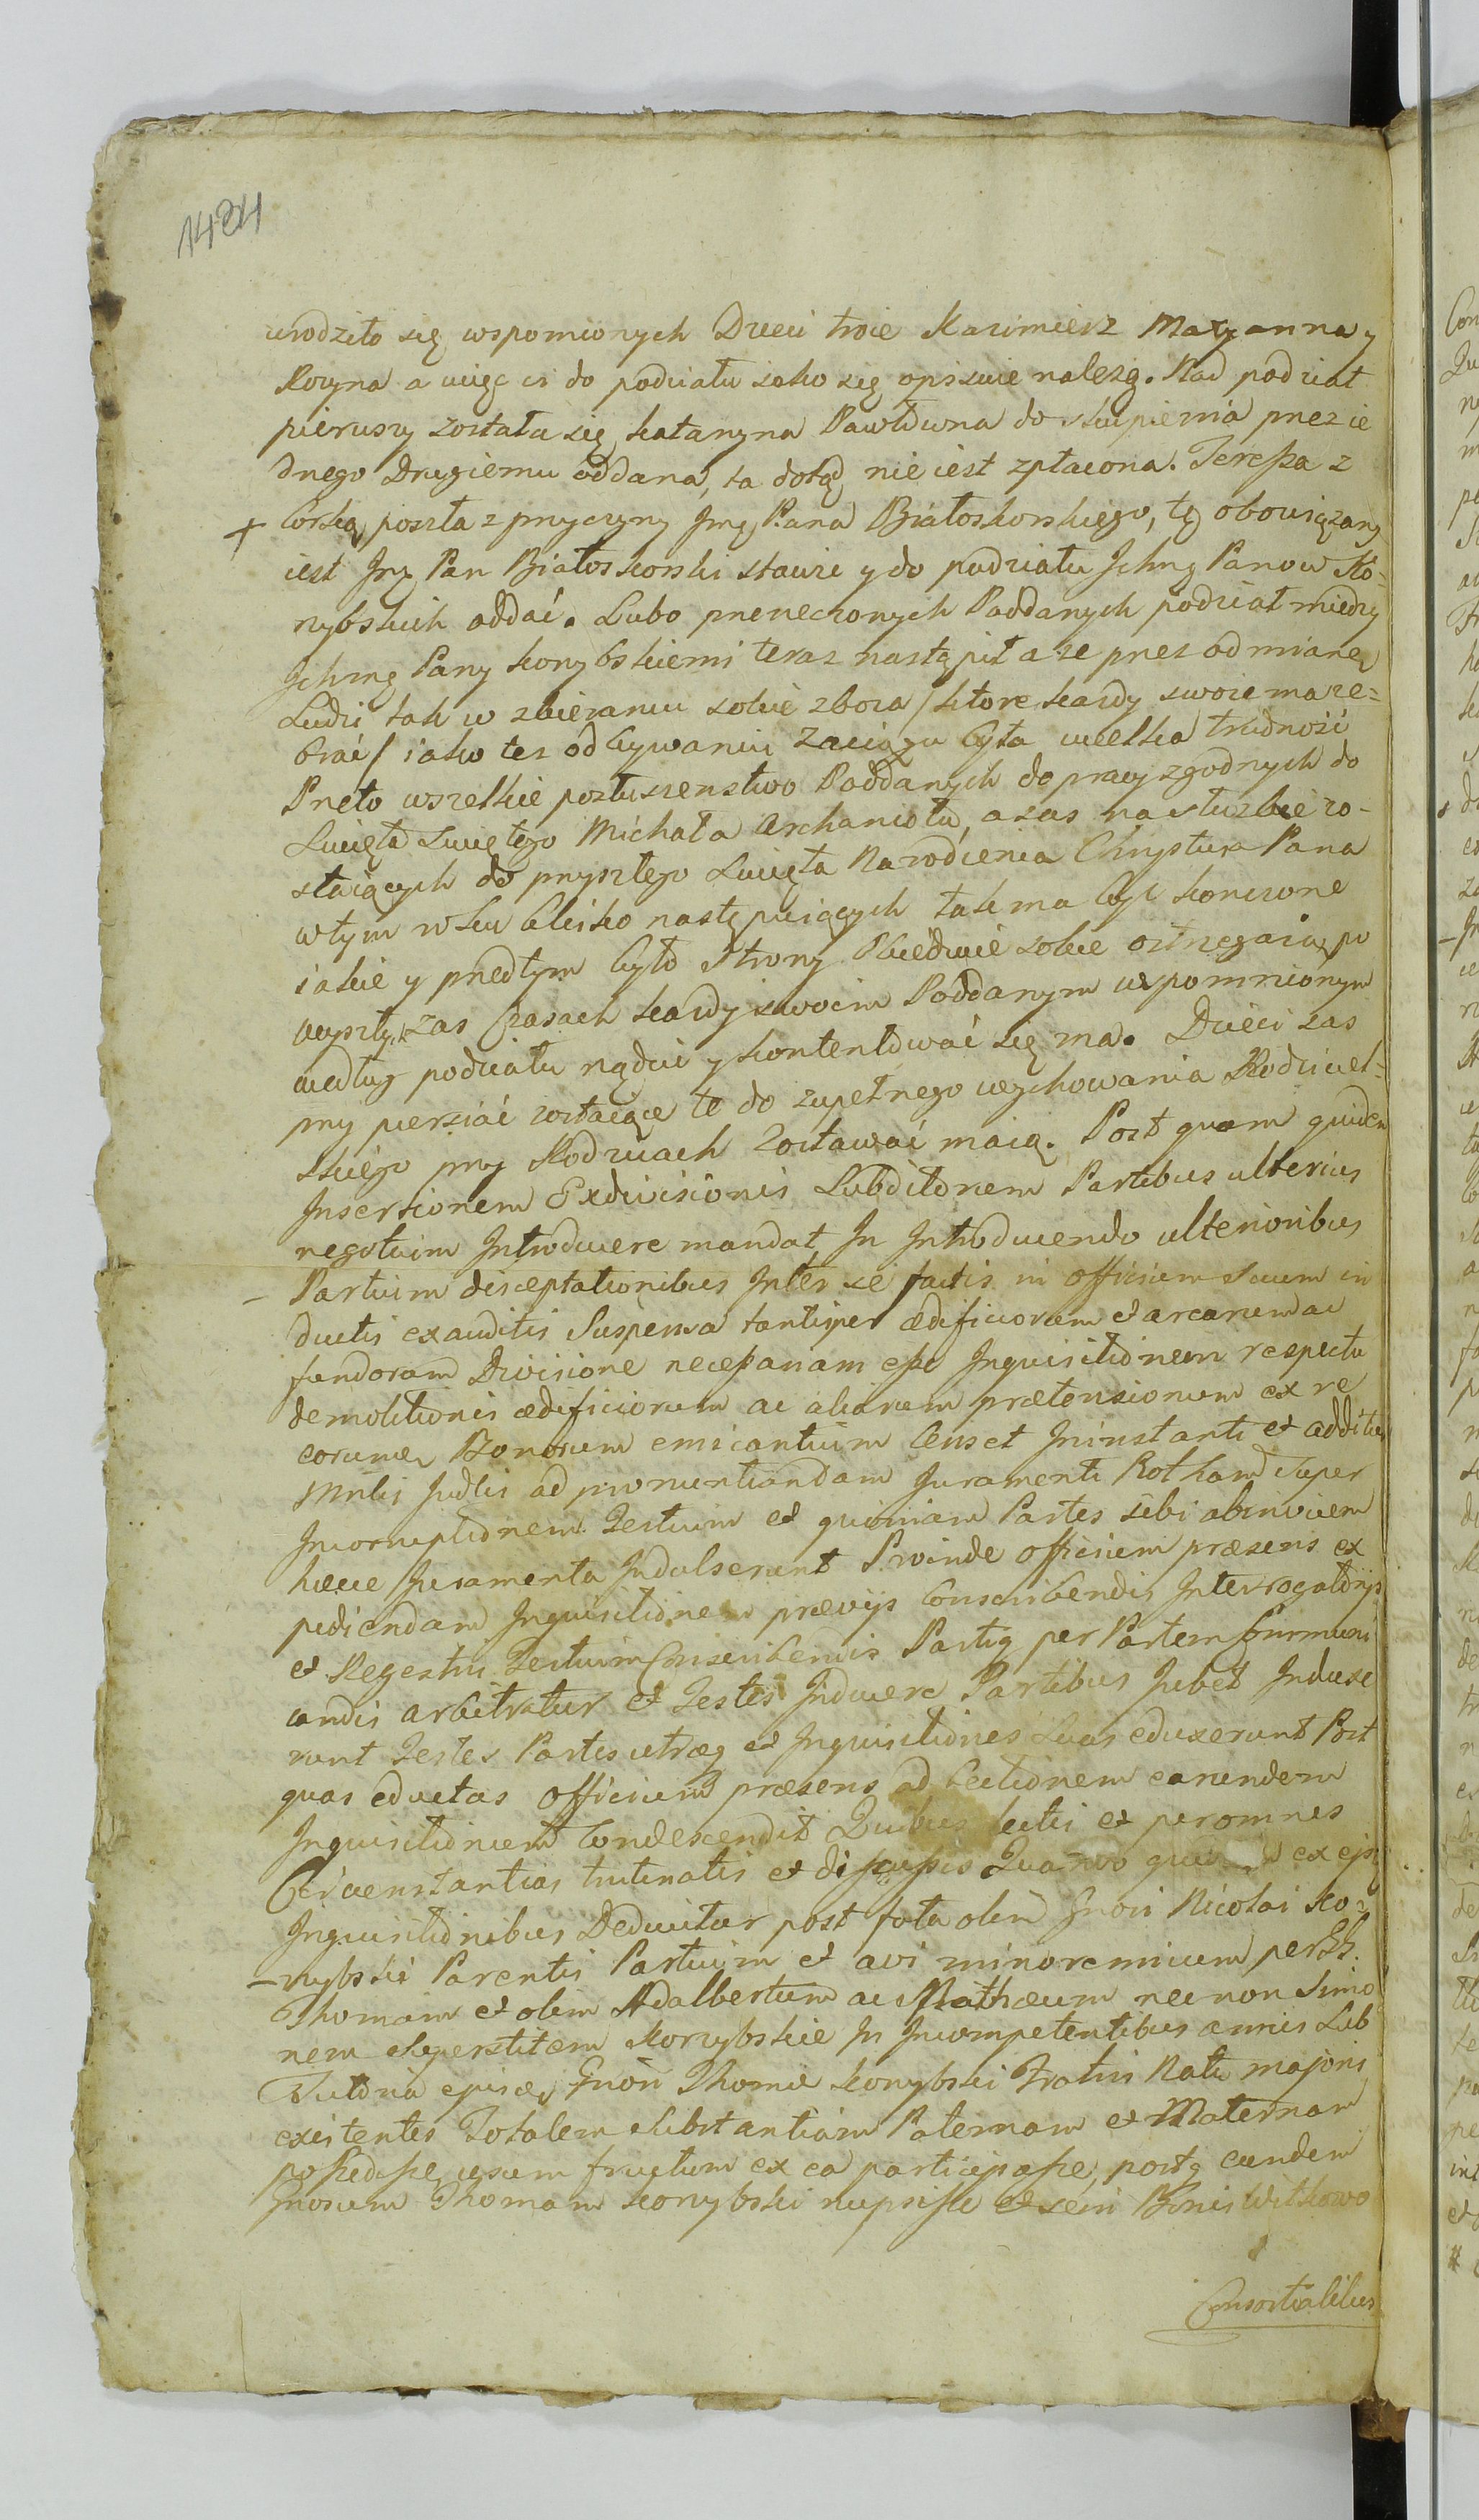 1424
urodziło się wspomionych Dzieci troie Kazimierz Maryanna y
Rozyna a więc ci do podziału iako się opisuie należą. Nad podział
pierwszy została się Katarzyna Pawłowna do skupienia przez ie
dnego Drugiemu oddana, ta dotąd nie iest zpłacona. Teressa z
+ Corką poszła z przyczyny Jmę Pana Białoskorskiego, tę obowiązany
iest Jmę Pan Białoskorski stawić y do podziału Ichmę Panow Ko=
rybskich oddać. Lubo przerzeczonych Poddanych podział między
Ichmę Pany Korybskiemi teraz nastąpił a że przez odmianę
Ludzi tak w zbieraniu sobie zboża / ktore kazdy swoie ma ze=
brać / iako tez odbywaniu zaciągu była wielka trudność
Przeto wszelkie posłuszenstwo Poddanych do pracy zgodnych do
Swięta Swiętego Michała Archanioła, a zas na służbie zo-
staiących do przyszłego Swięta Narodzenia Chrystusa Pana
w tym roku blisko następuiących tak ma być konczone
iakie y przedtym było Strony Obiedwie sobie ostrzegaią po
wyszłych zas Czasach kazdy swoim Poddanym wspomnionym
według podziału rządzić y kontentować się ma. Dzieci zas
przy piersiać zostaiące te do zupełnego wychowania Rodziciel=
skiego przy Rodzicach zostawać maią. Post quam quidem
Insertionem Exdivisionis Subditorum Partibus ulterius
negotium Introducere mandat, In Introducendo ulterioribus
– Partium disceptationibus Inter se factis in officium suum in
ductis exauditis Suspensa tantisper ædificiorum et arearum ac
fundorum Divisione necessariam esse Inquisitionem respectu
demolitionis ædificiorum ac aliarum prætensionum ex re
eorumq Bonorum emicantium Censet Ininstanti et addit
Mnlis Judlis ad pronuntiandam Juramenti Rotham super
Incorruptionem Testium et quoniam Partes sibi abinvicem
hæce Juramenta Indulserunt Proinde officium præsens ex
pediendam Inquisitionem prævijs Conscribendis Interrogatorijs
et Regestris Testium Conscribendis Partiq per Partem Communi
candis arbitratur et Testes Inducere Partibus Jubet Induxe
runt Testes Partes utræq et Inquisitiones Suas eduxerunt Post
quas eductas officium præsens ad Lectionem earundem
Inquisitionum Condescendit Quibus lectis et per omnes
Circumstantias trutinatis et discussis Quando ex ejsq
Inquisitionibus Deducitur post fata olim Gnosi Nicolai Ko=
– rybski Parentis Partium et avi minorennium per
Thomam et olim Adalbertum ac Mathæum necnon Simo
nem Superstitem Korybskie In Incompetentibus annis Sub
Tutoria Gnosi Thomæ Korybski Fratris Natu majoris
existentes Totalem Substantiam Paternam et Maternam
possedisse usum fructum ex ea participasse, postq eundem
Gnosum Thomam Korybski nupsisse et Bonis Witkowo
Consortialibus